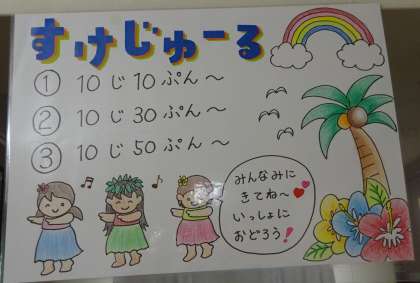 すけじゅーる
① 10 じ 10 ぷん ～
② 10 じ 30 ぷん ～
③ 10 じ 50 ぷん ～
みんなみに
きてね～
いっしょに
おどろう!